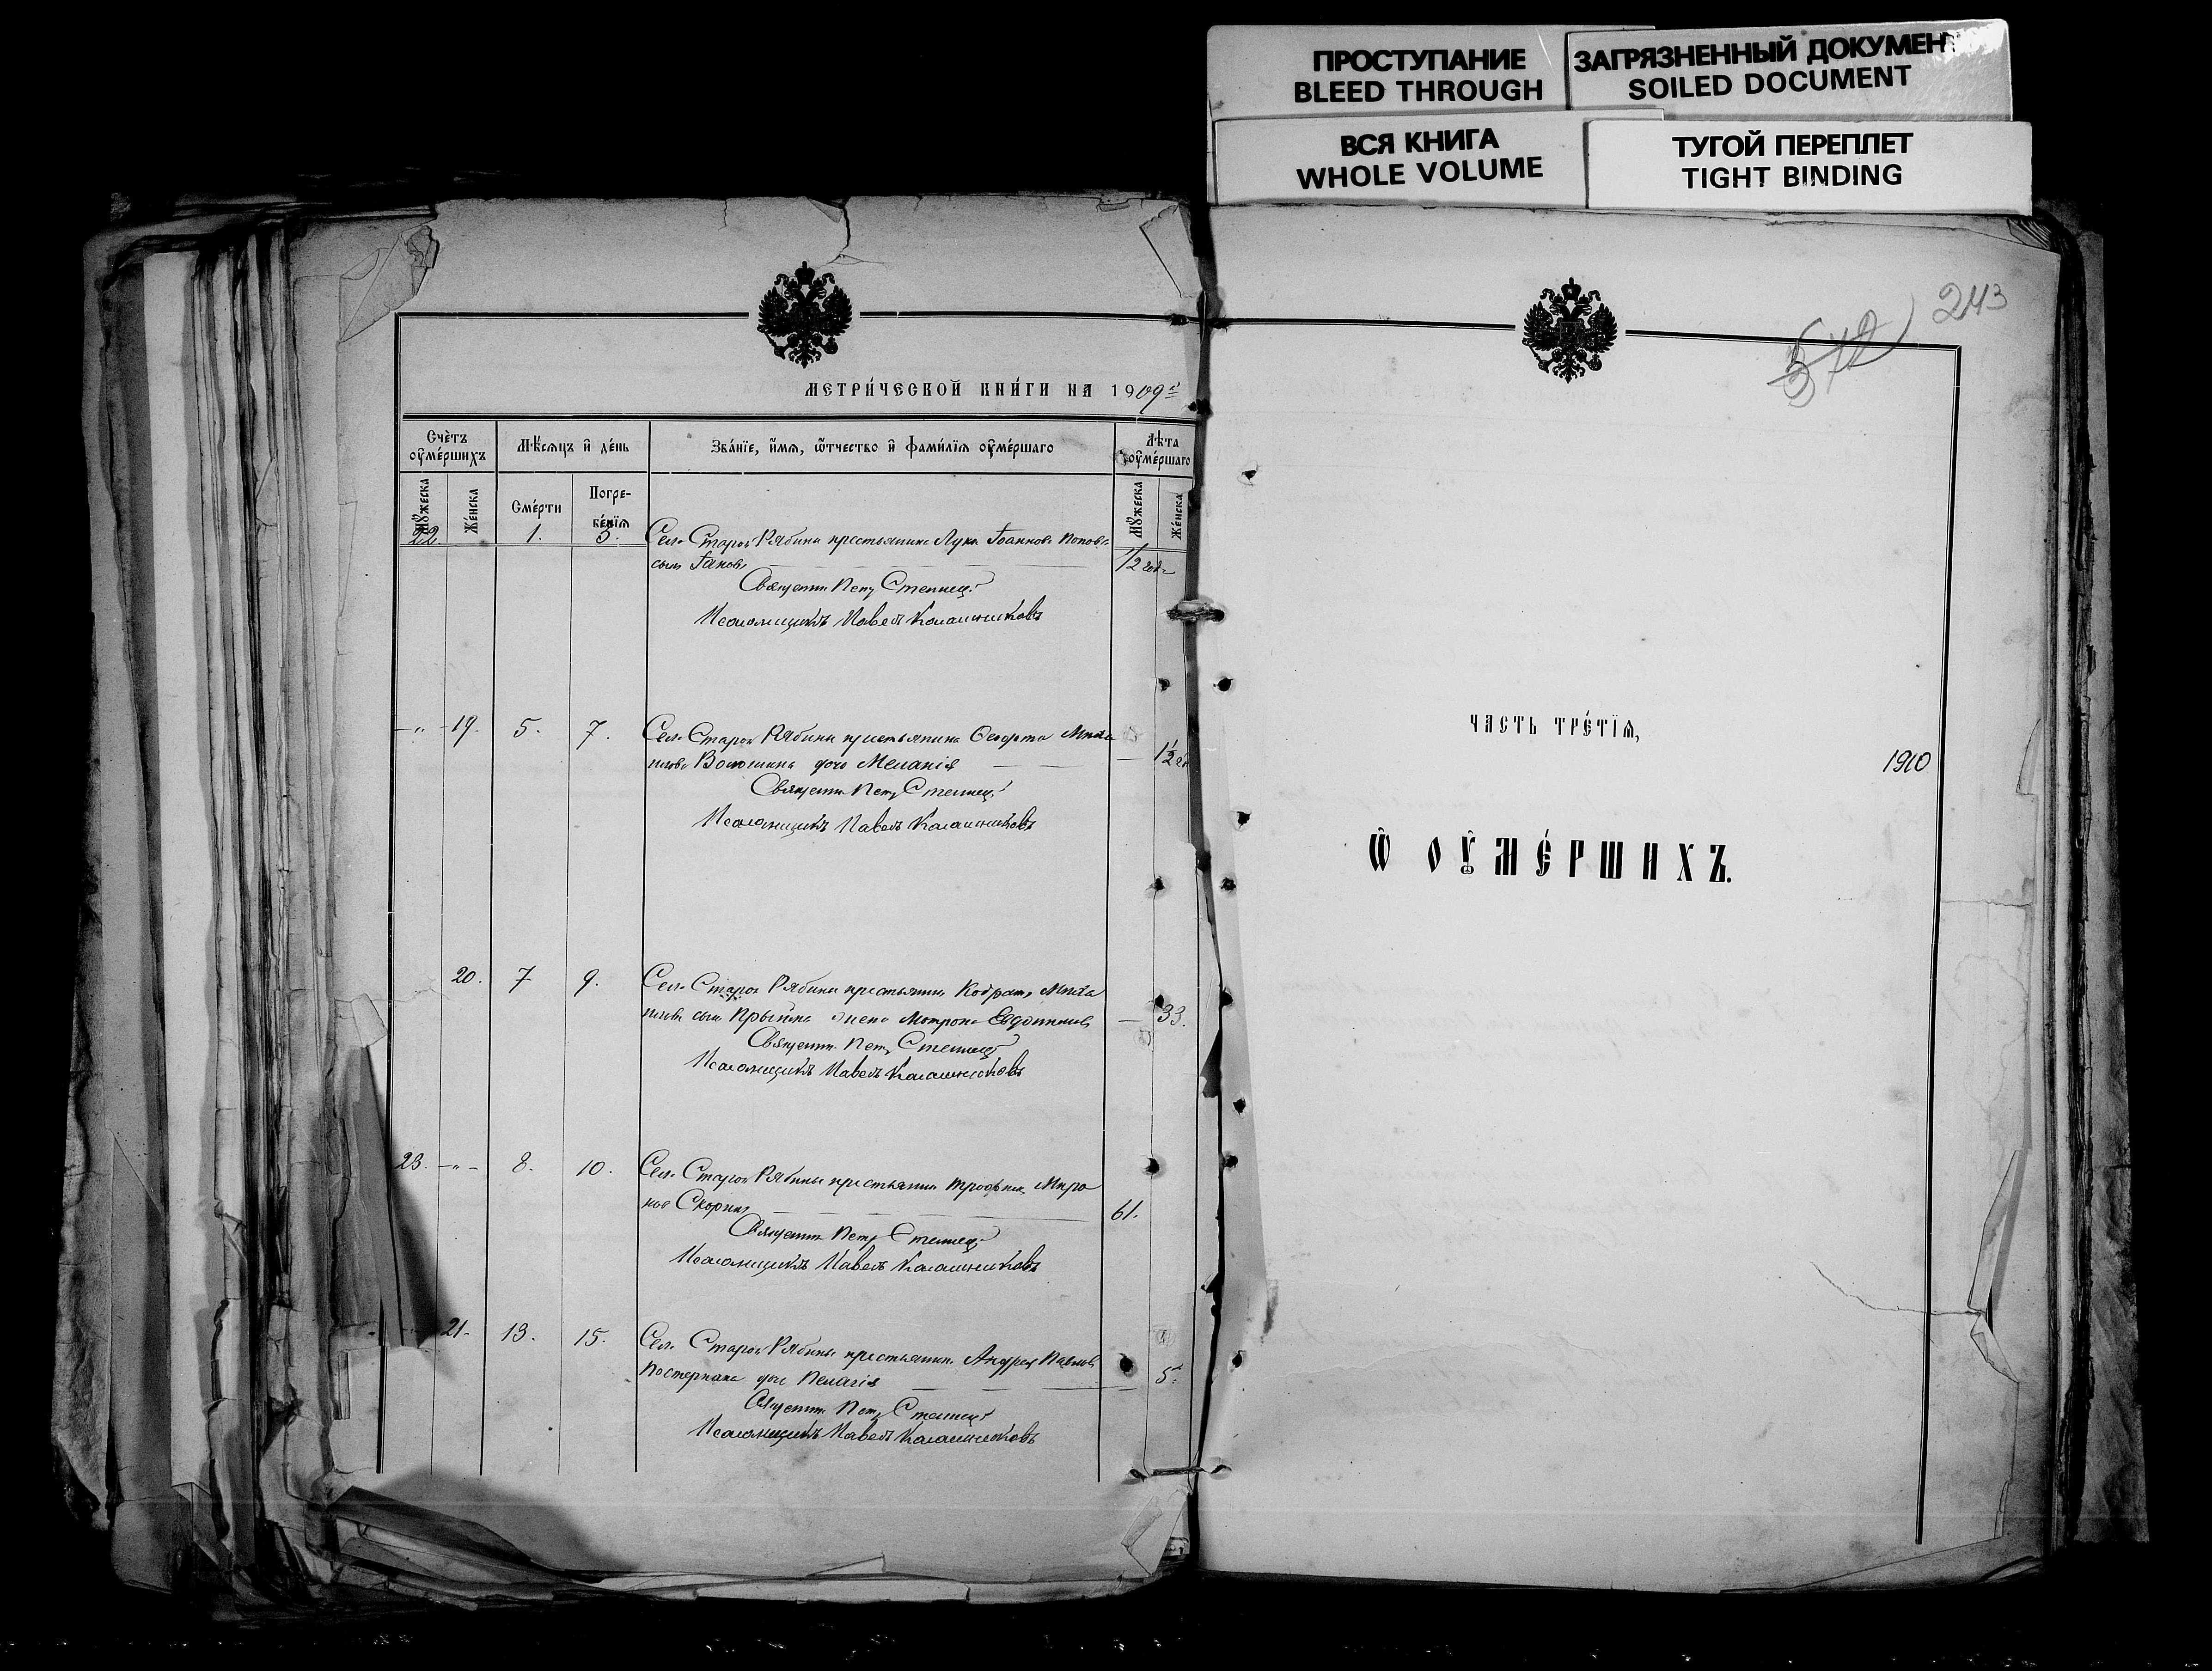 ПРОСТУПАНИЕ
BLEED THROUGH
ЗАГРЯЗНЕННЫЙ ДОКУМЕНТ
SOILED DOCUMENT
ВСЯ КНИГА
WHOLE VOLUME
ТУГОЙ ПЕРЕПЛЕТ
TIGHT BINDING
МЕТРИ́ЧЕСКОЙ КНИ́ГИ НА 1909 г
Счѐтъ ᲂу҆ме́ршихъ
Мѣ́сѧцъ и҆ де́нь
Зва́нїе, и҆́мѧ, ѻ҆́тчество и҆ фами́лїѧ ᲂу҆ме́ршаго
Лѣ́та ᲂу҆ме́ршаго
Мꙋ́жеска
Же́нска
Сме́рти
Погре-
бе́нїѧ
Мꙋ́жеска
Же́нска
22. 1. 3. Села Старой Рябины крестьянина Лука Іоаннова Попова
сынъ Іаковъ 1/2 года
Священ. Петр Степпец
Псаломщикъ Павелъ Калашниковъ
-„- 19. 5. 7. Села Старой Рябины крестьянина Михаи
лова Волошина дочь Меланія 1 1/2
Священ. Петр
Псаломщикъ Павелъ Калашниковъ
20. 7 9. Села Старой Рябины крестьянина Кодрата Михаи
лова сына жена Матрона Евдокимова 33.
Священ. Петр
Псаломщикъ Павелъ Калашниковъ
23. -„- 8. 10. Села Старой Рябины крестьянин Трофим Миро
нов Скорик 61.
Священ. Петр
Псаломщикъ Павелъ Калашниковъ
21. 13. 15. Села Старой Рябины крестьянина Андрея Павлова
Постернака дочь Пелагія 5.
Священ. Петр
Псаломщикъ Павелъ Калашниковъ
243
572
ЧАСТЬ ТРЕ́ТЇѦ,
1910
Ѡ҆ ОУ҆МЕ́РШИХЪ.